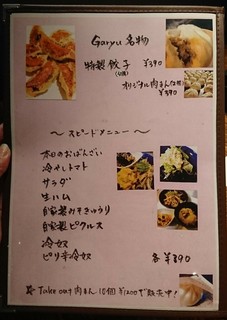 Garyu 名物
特製餃子 ¥390
(6個)
オリジナル肉まん
¥390
～スピードメニュー～
本日のおばんざい
冷やしトマト
サラダ
生ハム
自家製みそきゅうり
自家製ピクルス
冷奴
ピリ辛冷奴 各¥390
Take out 肉まん 10個 ¥1200で販売中!